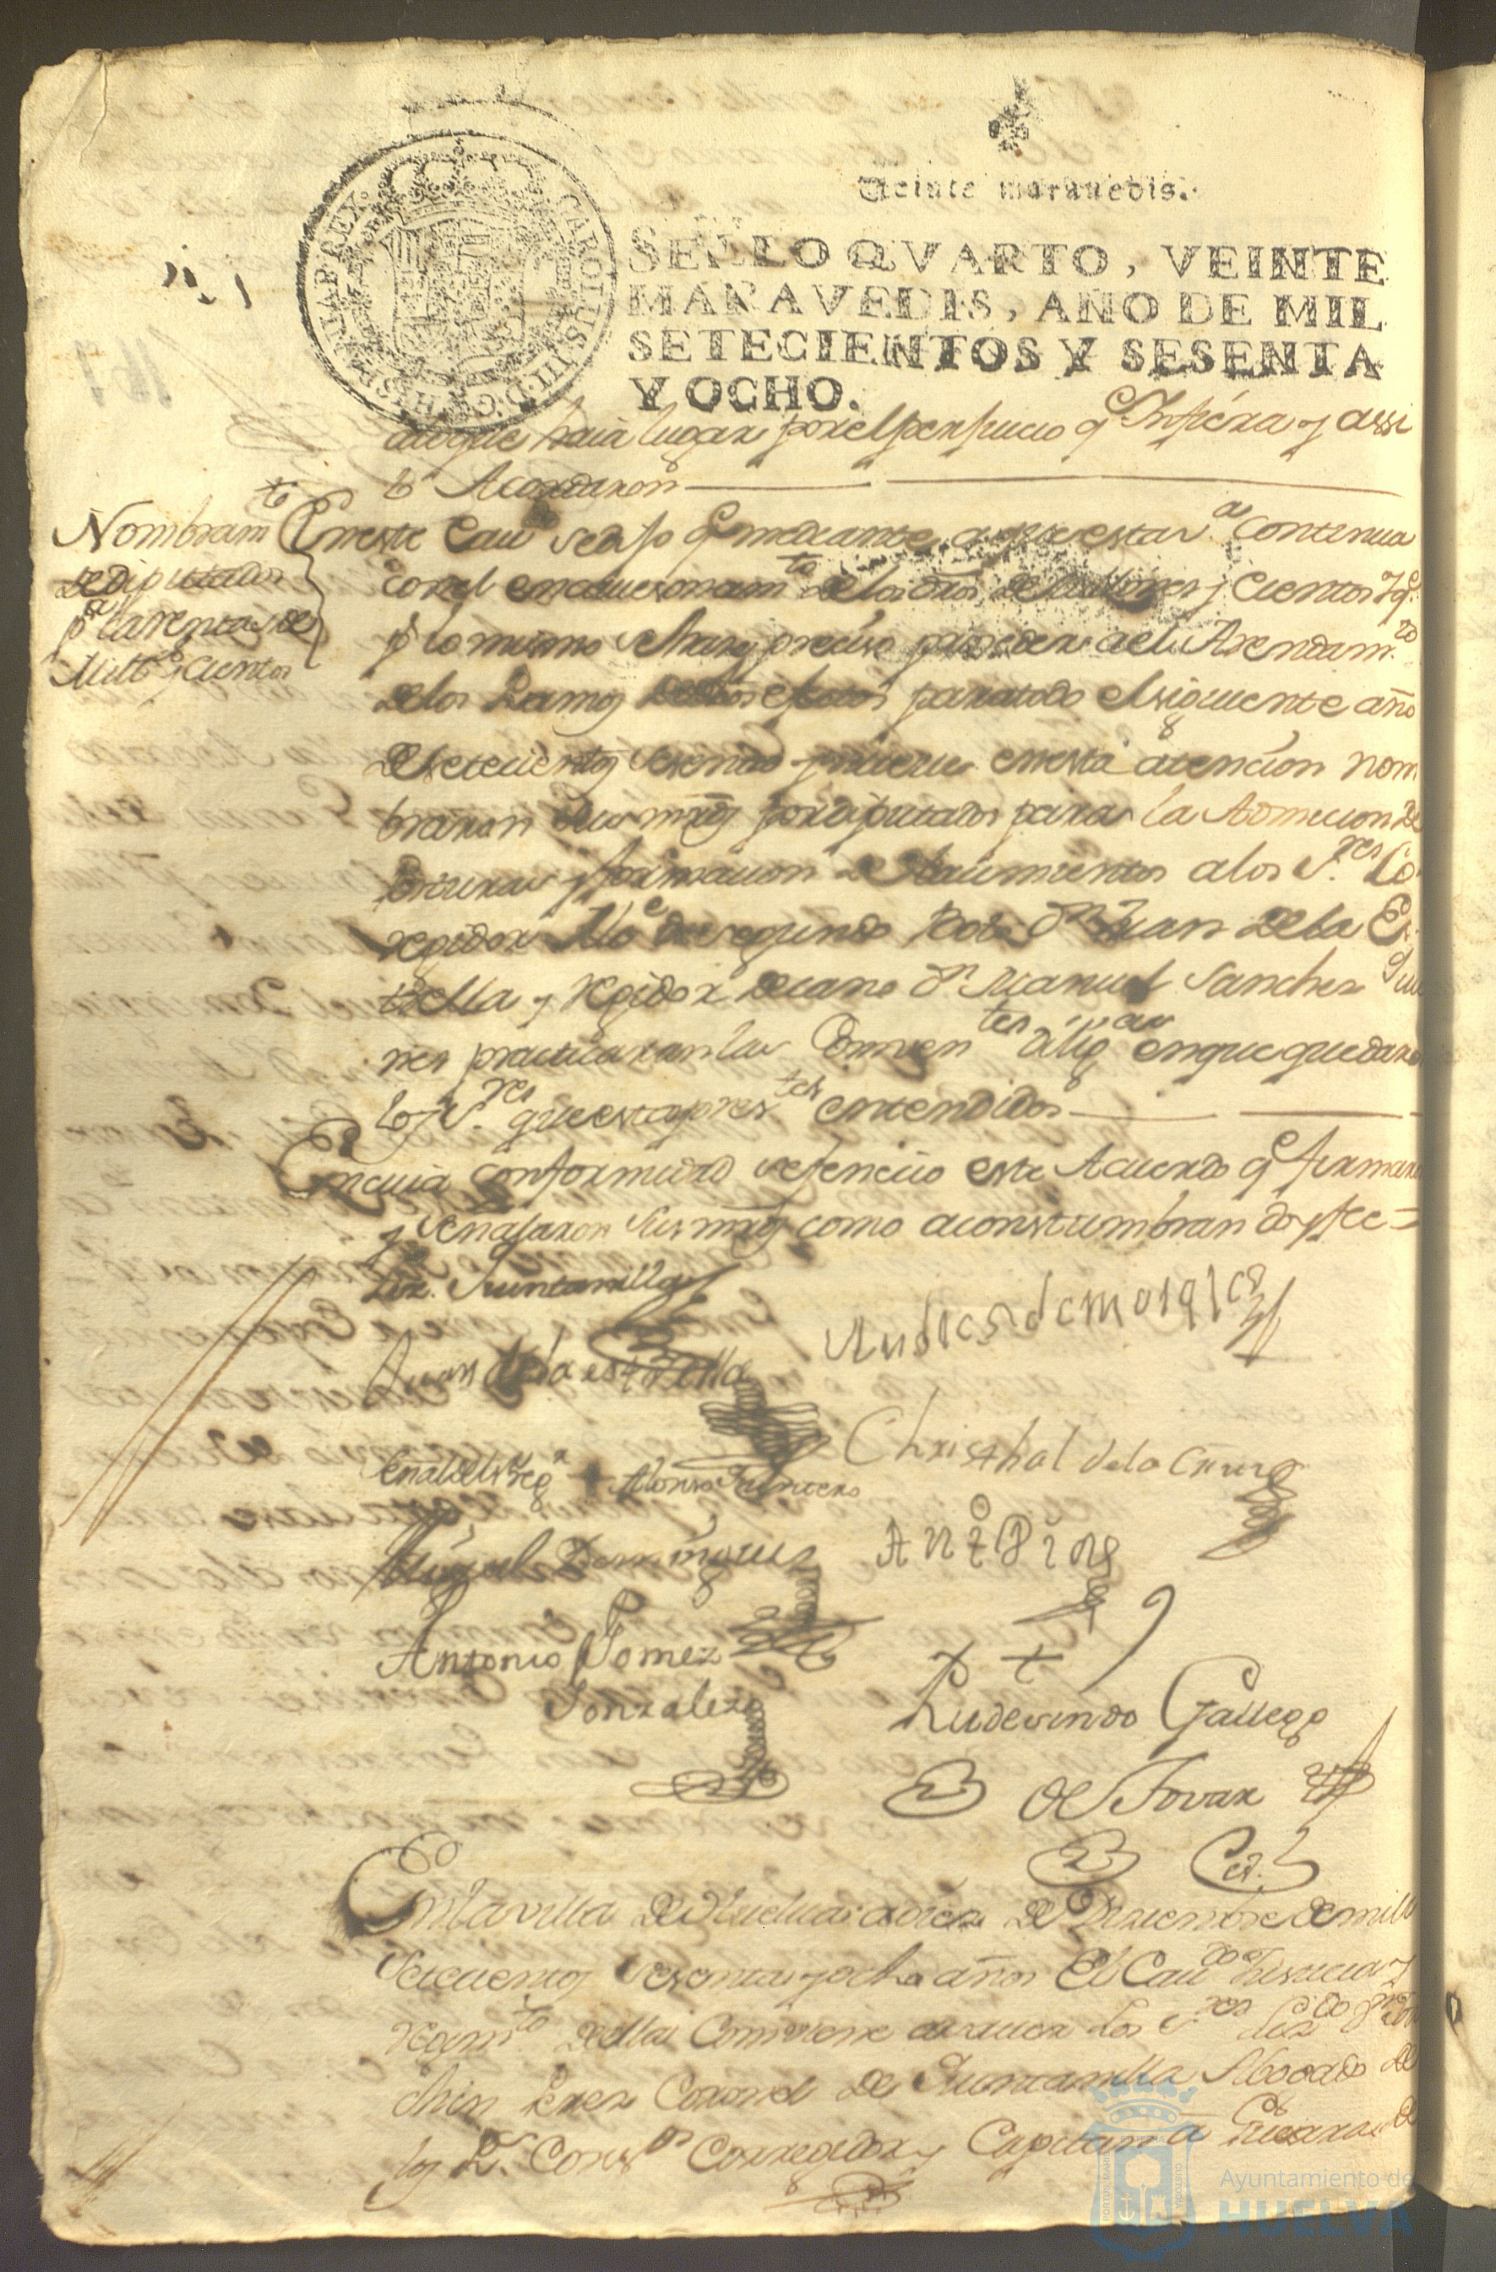 Veinte marauedis.
SELLO QVARTO, VEINTE
MARAVEDIS, AÑO DE MIL
SETECIENTOS Y SESENTA
Y OCHO.
CAROLUS III. D. G. HISPANIAR. REX.
aque haia lugar por el perjuicio q.e Infiéra y assi
lo Acordaron
Nombram.to
de diputados
p.a la rentas de
Mill.s y Cientos
En este Cau.do se dijo q.e mediante a que esta v.a Continua
con el encauesonam.to de los dros de Millones y Cientos y q.e
p.r lo mismo se hace preciso proceder a el Arendam.to
de los Ramos de dhos efectos para todo el siguiente año
de setecientos sesenta y nueue en esta atencion nom
braron sus mrds por diputados para la Admicion de
Posturas y formacion de Hacimientos a los S.res Co
rregidor Alc.e de segundo Voto D.n Juan de la Es
trella y Regidor Decano D.n Manuel Sanchez Quie
nes practicaran las Combenien.tes dilig.as en que quedaron
los S.res que estan pres.tes entendidos
En cuia conformidad se fenecio este Acuerdo q.e firmaron
y señalaron sus mrds como acostumbran doy fee =
Liz. Quintanilla
Andres de morales
Juan de la estrella
Christobal de la Cruz
Señal del s.r reg.r + Alonso Quintero
Miguel Dominguez
Antonio Gomez
Gonzalez
Rudesindo Gallego
de Tovar
En la villa de Huelua a diez de Diziembre de mill
Setecientos sesenta y ocho años El Cau.do Justicia y
Regim.to de ella Combiene a sauer los S.res Liz.do D.n Joa
chin Perez Coronel de Quintanilla Abogado de
los R.s Cons.os Corregidor y Capitan a Guerra de
Ayuntamiento de
HUELVA